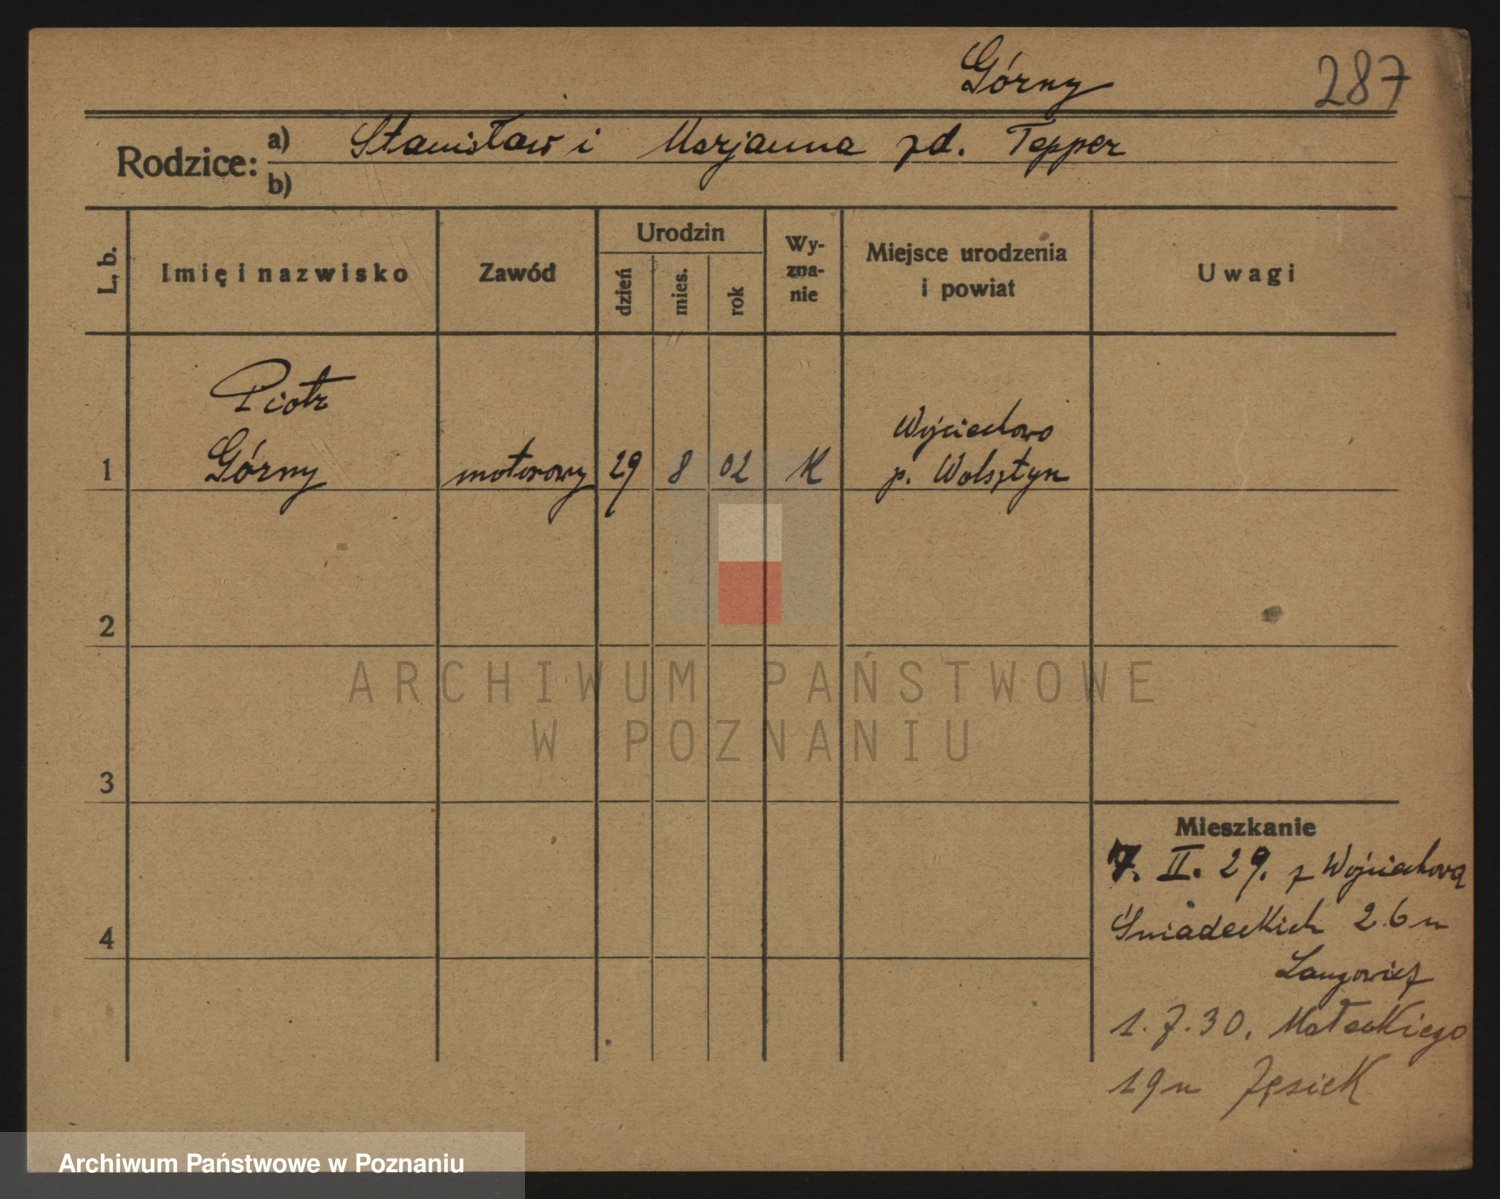 Górny 287
Rodzice: a) Stanisław i Marjanna zd. Tepper
b)
L. b. Imię i nazwisko Zawód Urodzin dzień mies. rok Wy-zna-nie Miejsce urodzenia i powiat Uwagi
Piotr
Wojciechowo
1 Górny motorowy 29 8 02 K p. Wolsztyn
2
ARCHIWUM PAŃSTWOWE
W POZNANIU
3
Mieszkanie
7. II. 29. z Wojciechowa
4 Śniadeckich 26 u
1. 7. 30. Małeckiego
19 u
Archiwum Państwowe w Poznaniu